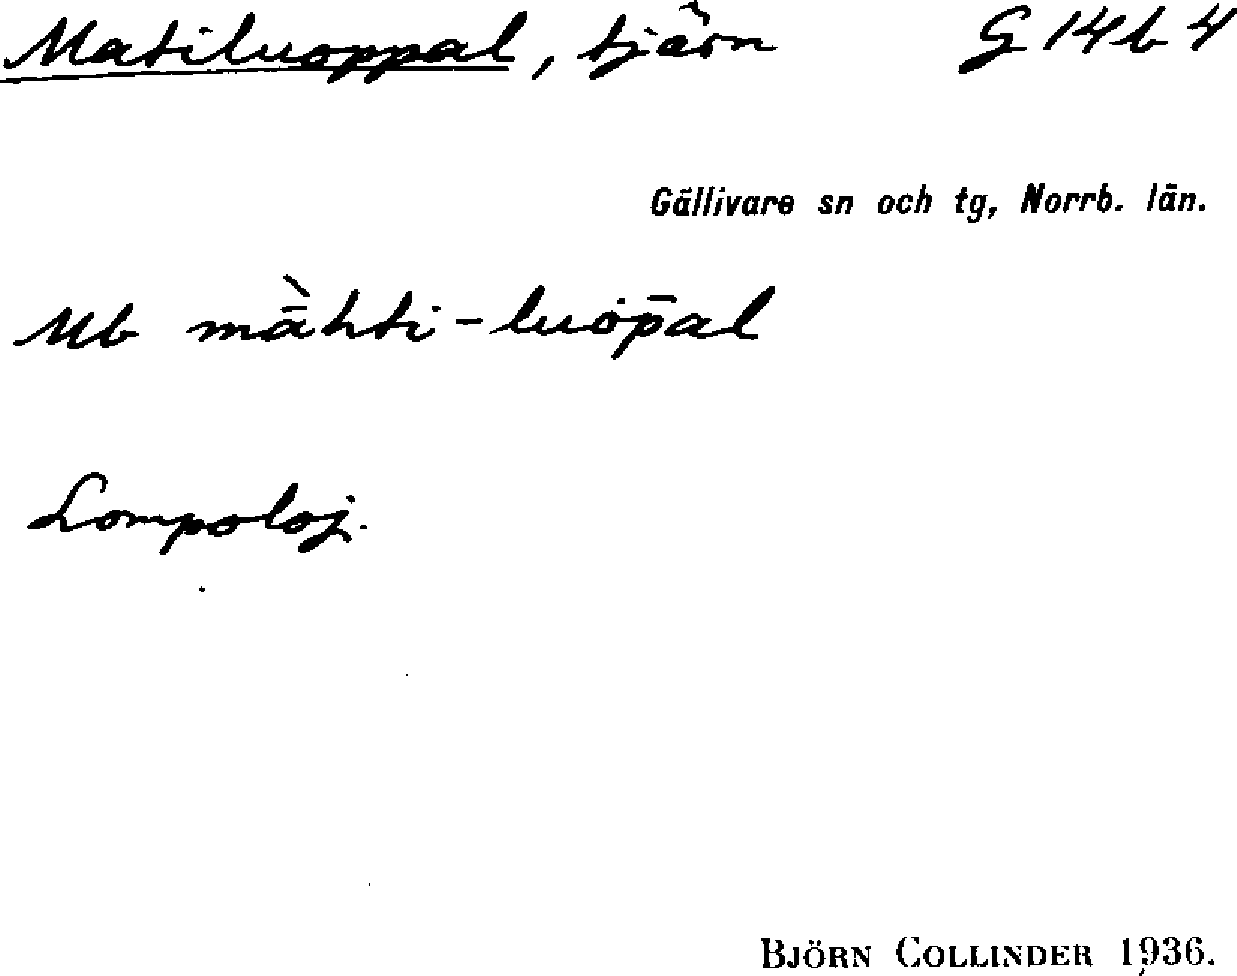 Matiluoppal, tjärn G 14 b 4
Gällivare sn och tg, Norrb. län.
Ub mā̀hti-luȯp̄al
Lompoloj.
BJÖRN COLLINDER 1936.